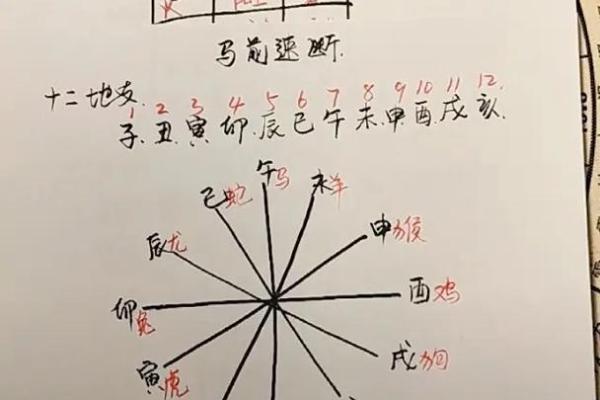 马前速断.
十二地支.
1 2 3 4 5 6 7 8 9 10 11 12.
子.丑.寅.卯.辰.巳.午.未.申.酉.戌.亥.
午马
巳蛇 未羊
辰龙 申猴
卯兔 酉鸡
寅虎 戌狗